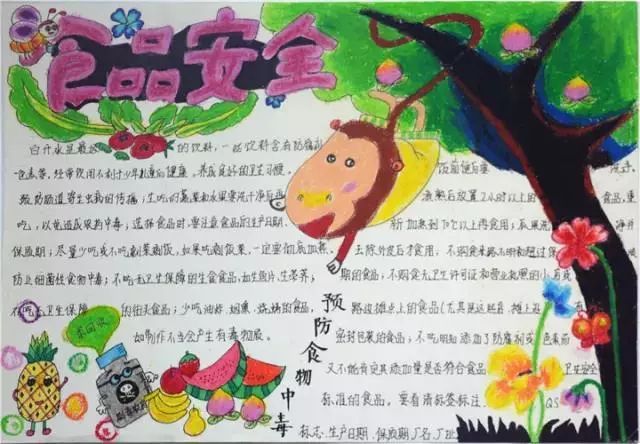 食品安全
白开水是最
的饮料，一些饮料含有防腐剂
色素等，经常饮用不利于少年儿童的健康。养成良好的卫生习惯，
预防肠道寄生虫病的传播；生吃的蔬菜和水果要洗干净后再
吃，以免造成农药中毒；选择食品时，要注意食品的生产日期、
保质期；尽量少吃或不吃剩菜剩饭，如果吃剩饭菜，一定要彻底加热，
防止细菌性食物中毒；不吃无卫生保障的生食食品，如生鱼片、生荸荠；
不吃无卫生保障
的街头食品；少吃油炸、烟熏、烧烤的食品，
如制作不当会产生有毒物质。
预防食物中毒
饭前便后要
洗手。
煮熟后放置2小时以上的
食品，重
新加热到70℃以上再食用；瓜果洗
净并
去除外皮后才食用，不购食来路不明和超过保
期的食品；不购食无卫生许可证和营业执照的小店或
路边摊点上的食品
密封包装的食品；不吃明知添加了防腐剂或色素而
又不能肯定其添加量是否符合食品
卫生安全
标准的食品。要看清标签标注
QS
标志、生产日期、保质期、厂名、厂址